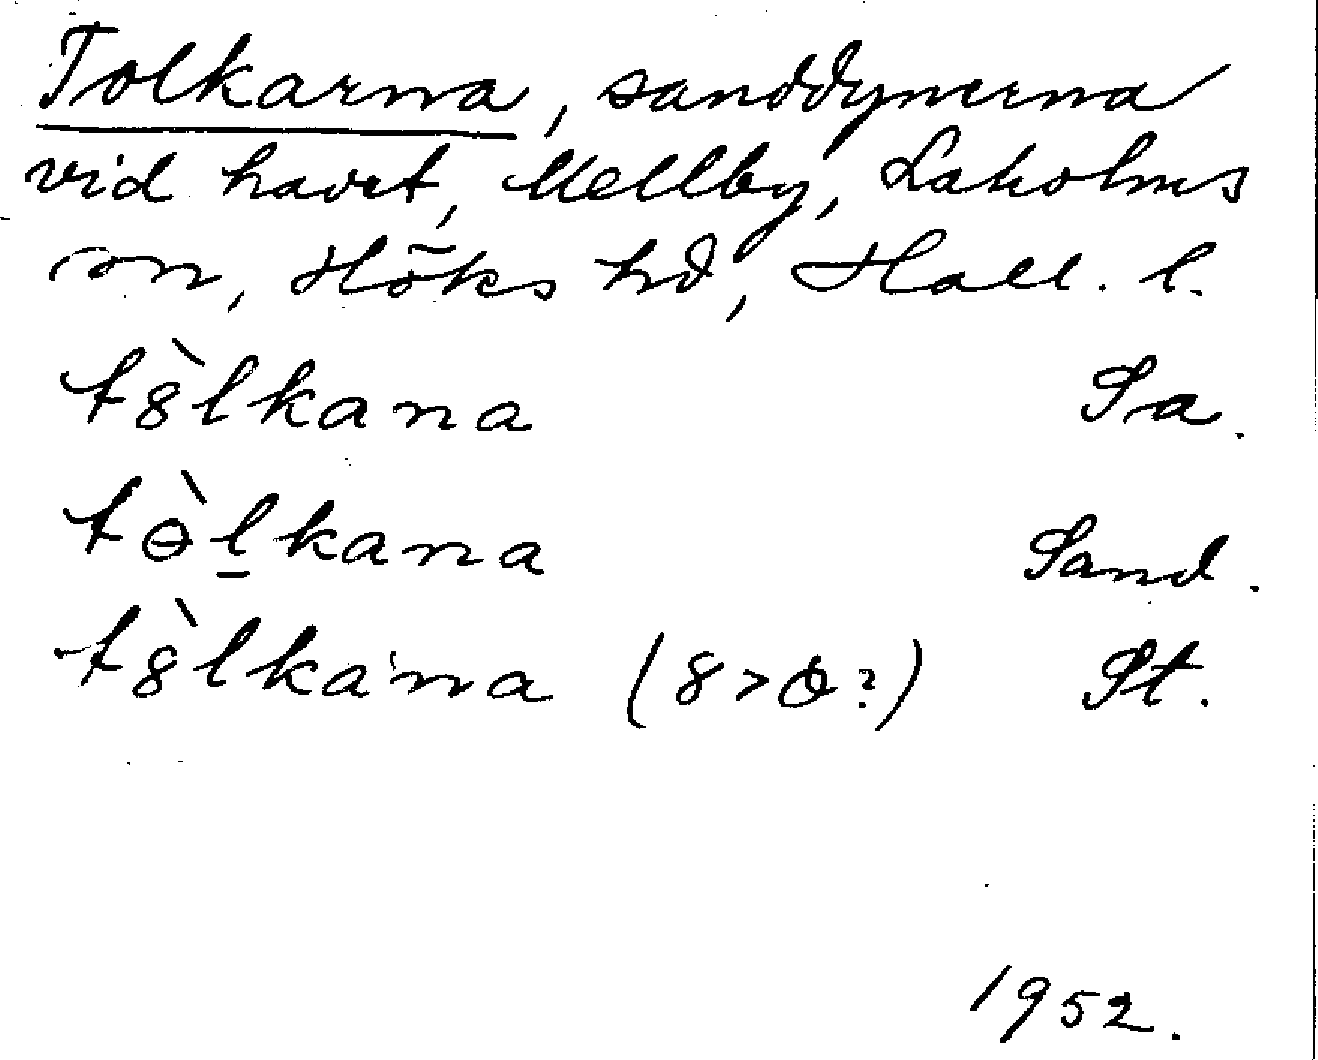 Tolkarna, sanddynerna
vid havet, Mellby, Laholms
sn, Höks hd, Hall. l.
t8̀lkana Sa.
tɵ̀l̲kana Sand.
t8̀lkana (8>ɵ?) St.
1952.